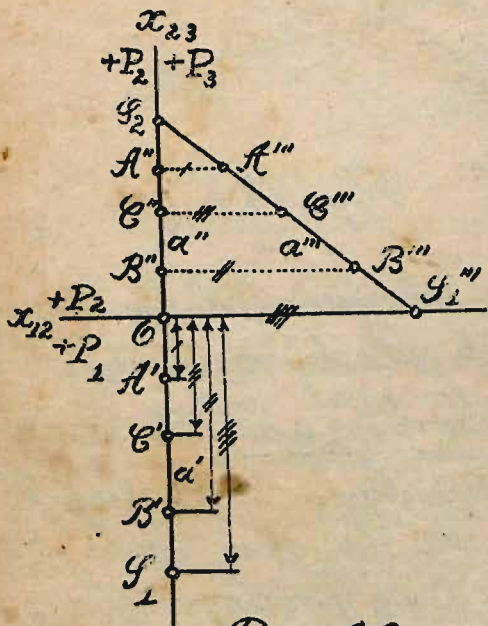 x₂₃
+P₂ ÷P₃
S₂
A" A'''
C" C'''
a" a'''
B" B'''
S₁'''
x₁₂ +P₂
÷P₁
O
A'
C'
a'
B'
S₁